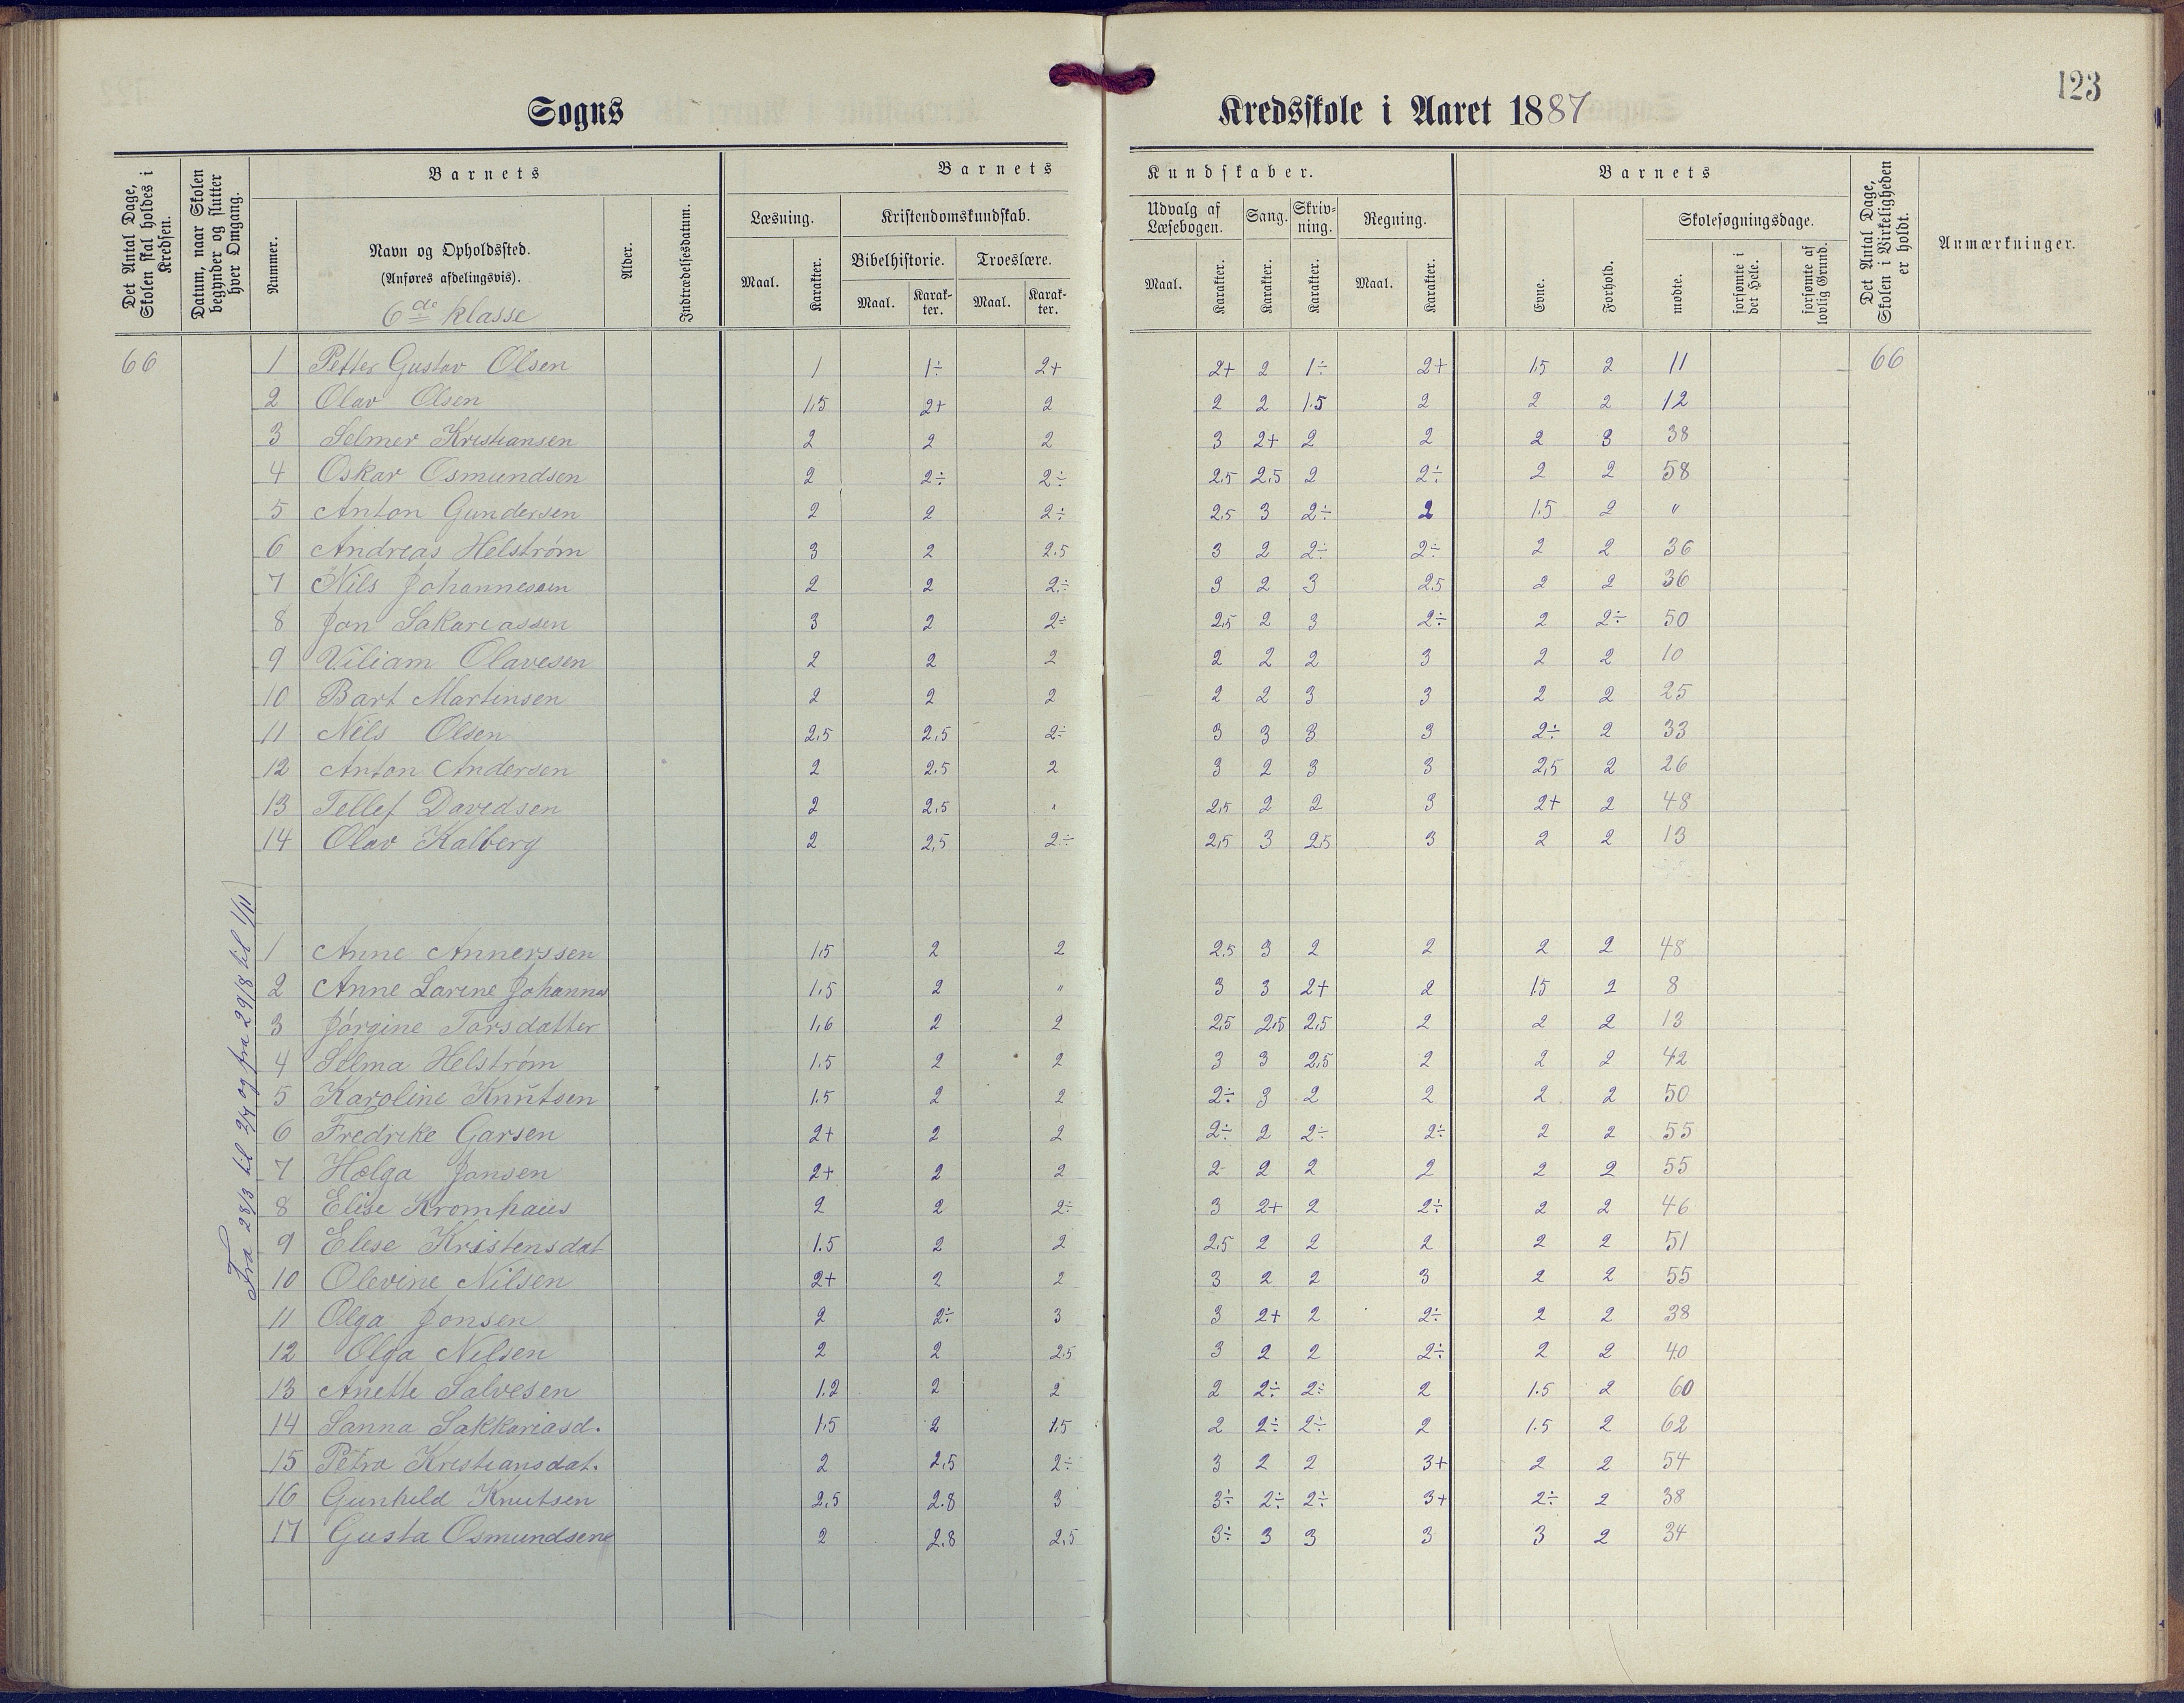 123
Sogns Kredsskole i Aaret 1887
Det Antal Dage, Skolen skal holdes i Kredsen.
Datum, naar Skolen begynder og slutter hver Omgang.
Barnets
Nummer.
Navn og Opholdssted.
(Anføres afdelingsvis).
6de Klasse
Alder.
Indtrædelsesdatum.
Barnets Kundskaber.
Læsning.
Maal.
Karakter.
Kristendomskundskab.
Bibelhistorie.
Maal.
Karakter.
Troeslære.
Maal.
Karakter.
Udvalg af Læsebogen.
Maal.
Karakter.
Sang.
Karakter.
Skrivning.
Karakter.
Regning.
Maal.
Karakter.
Barnets
Evne.
Forhold.
Skolesøgningsdage.
mødte.
forsømte i det Hele.
forsømte af lovlig Grund.
Det Antal Dage, Skolen i Virkeligheden er holdt.
Anmærkninger.
66 1 Petter Gustav Olsen 1 1÷ 2+ 2+ 2 1÷ 2+ 1.5 2 11 66
2 Olav Olsen 1.5 2+ 2 2 2 1.5 2 2 2 12
3 Selmer Kristiansen 2 2 2 3 2+ 2 2 2 3 38
4 Oskar Osmundsen 2 2÷ 2÷ 2.5 2.5 2 2÷ 2 2 58
5 Anton Gundersen 2 2 2÷ 2.5 3 2÷ 2 1.5 2 "
6 Andreas Helstrøm 3 2 2.5 3 2 2÷ 2÷ 2 2 36
7 Nils Johannesen 2 2 2÷ 3 2 3 2.5 2 2 36
8 Jon Sakareassen 3 2 2÷ 2.5 2 3 2÷ 2 2÷ 50
9 Viliam Olavesen 2 2 2 2 2 2 3 2 2 10
10 Bart Martinsen 2 2 2 2 2 3 3 2 2 25
11 Nils Olsen 2.5 2.5 2÷ 3 3 3 3 2÷ 2 33
12 Anton Andersen 2 2.5 2 3 2 3 3 2.5 2 26
13 Tellef Davedsen 2 2.5 " 2.5 2 2 3 2+ 2 48
14 Olav Kalberg 2 2.5 2÷ 2.5 3 2.5 3 2 2 13
Fra 28/3 til 2/7 og fra 29/8 til 1/11
1 Anne Annerssen 1.5 2 2 2.5 3 2 2 2 2 48
2 Anne Larine Johannes 1.5 2 " 3 3 2+ 2 1.5 2 8
3 Jørgine Torsdatter 1.6 2 2 2.5 2.5 2.5 2 2 2 13
4 Selma Helstrøm 1.5 2 2 3 3 2.5 2 2 2 42
5 Karoline Knutsen 1.5 2 2 2÷ 3 2 2 2 2 50
6 Fredrike Garsen 2+ 2 2 2÷ 2 2÷ 2÷ 2 2 55
7 Helga Jansen 2+ 2 2 2- 2 2 2 2 2 55
8 Elise Kromhaus 2 2 2÷ 3 2+ 2 2÷ 2 2 46
9 Elese Kristensdat 1.5 2 2 2.5 2 2 2 2 2 51
10 Olevine Nilsen 2+ 2 2 3 2 2 3 2 2 55
11 Olga Jonsen 2 2÷ 3 3 2+ 2 2÷ 2 2 38
12 Olga Nelsen 2 2 2.5 3 2 2 2÷ 2 2 40
13 Anette Salvesen 1.2 2 2 2 2÷ 2÷ 2 1.5 2 60
14 Sanna Sakkariasd. 1.5 2 1.5 2 2÷ 2÷ 2 1.5 2 62
15 Petra Kristiansdat. 2 2.5 2÷ 3 2 2 3+ 2 2 54
16 Gunhild Knutsen 2.5 2.8 3 3÷ 2÷ 2÷ 3+ 2÷ 2 38
17 Gusta Osmundsen 2 2.8 2.5 3÷ 3 3 3 3 2 34